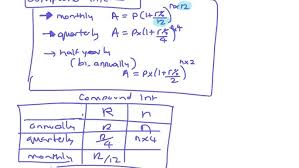 Compound Int
→ monthly A = P(1+r%/12)^n×12
→ quarterly A = P×(1+r%/4)^n×4
→ half yearly
(bi-annually)
A = P×(1+r%/2)^n×2
Compound Int
R n
annually R n
quarterly R/4 n×4
monthly R/12